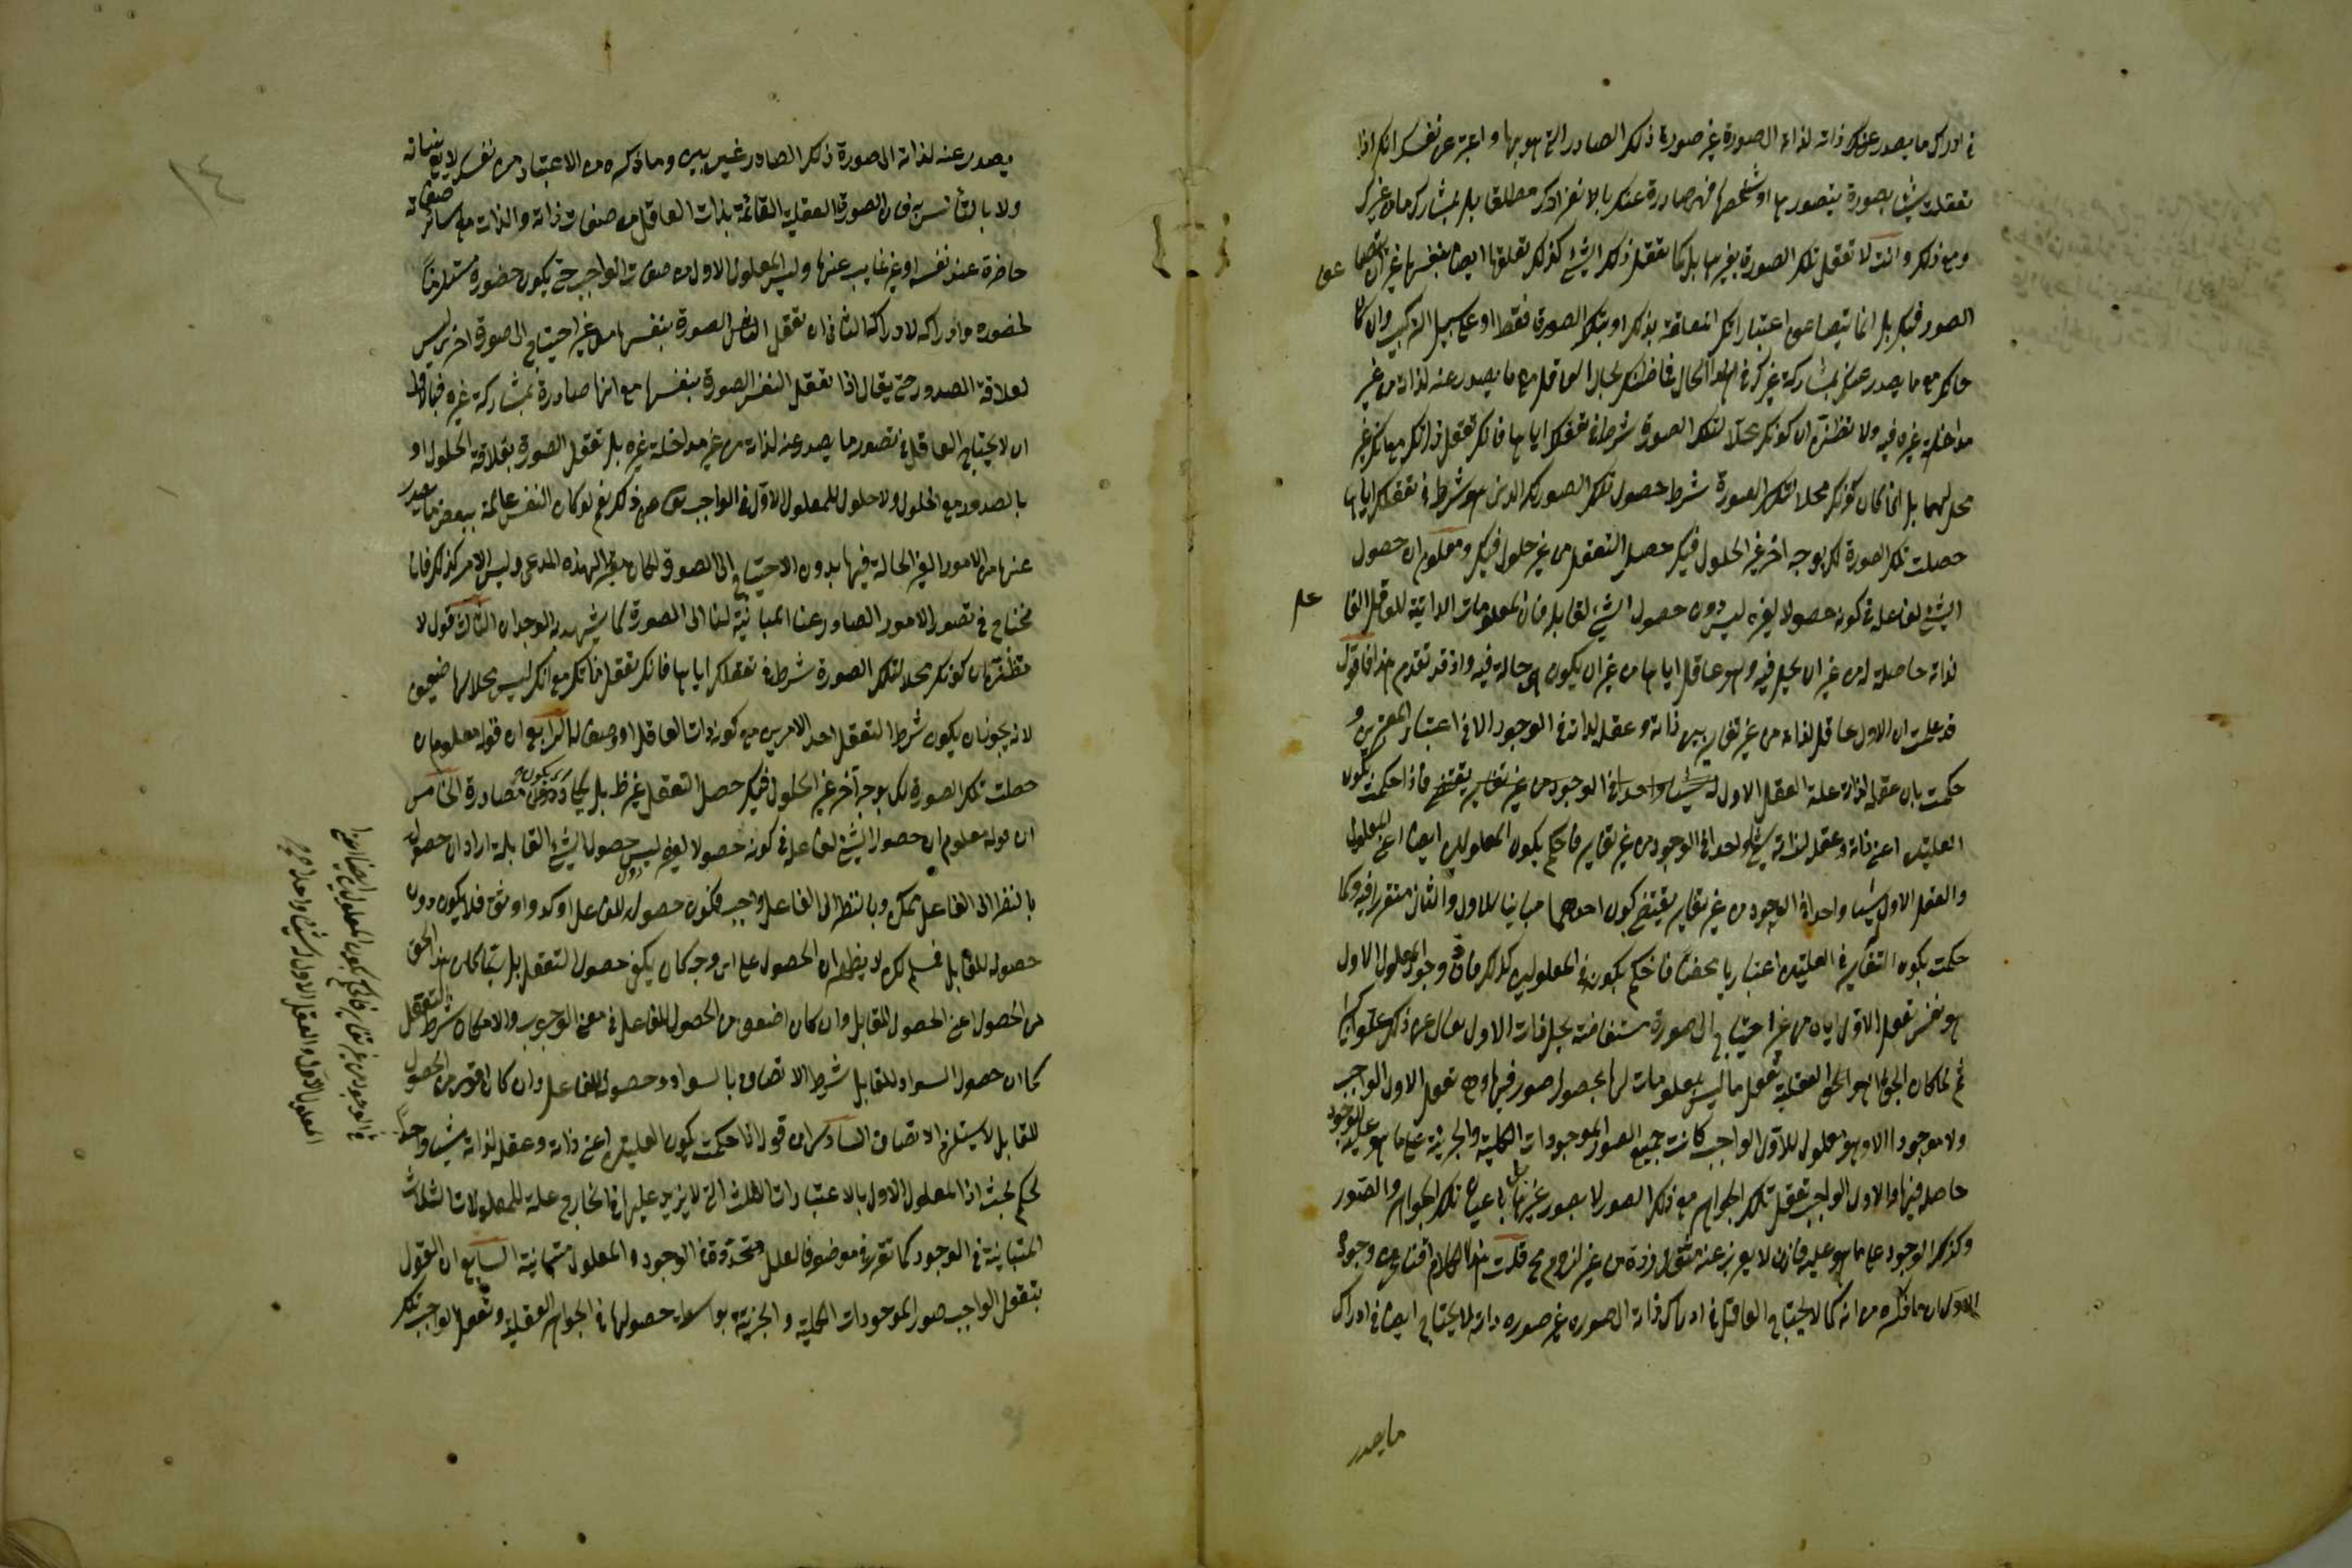 في ادراك ما يصدر عن ذاته لذاته الى صورة غير صورة ذلك الصادر التي هو بها واعتبر من نفسك انك اذا
تعقلت شيئا بصورة تتصورها او تستحضرها فهي صادرة عنك لا بانفرادك مطلقا بل بمشاركة ما من غيرك
ومع ذلك وانت لا تعقل تلك الصورة بغيرها بل كما تعقل ذلك الشيء كذلك تعقلها ايضا بنفسها من غير ان تتضاعف
الصور فيك بل انما تتضاعف اعتباراتك المتعلقة بذلك او بتلك الصورة فقط او على سبيل التركيب واذا كان
حالك مع ما يصدر عنك بمشاركة غيرك هذا الحال فما ظنك بحال العاقل مع ما يصدر عنه لذاته من غير
مداخلة غيره فيه ولا تظنن ان كونك محلا لتلك الصورة شرط في تعقلك اياها فانك تعقل ذاتك مع انك غير
محل لها بل انما كان كونك محلا لتلك الصورة شرط حصول تلك الصورة لك الذي هو شرط في تعقلك اياها فان
حصلت تلك الصورة لك بوجه اخر غير الحلول فيك حصل التعقل من غير حلول فيك ومعلوم ان حصول
الشيء لفاعله في كونه حصولا لغيره ليس دون حصول الشيء لقابله فان المعلومات الذاتية للعاقل الفاعل
لذاته حاصلة له من غير ان يحل فيه وهو عاقل اياها من غير ان يكون هي حالة فيه واذ قد تقدم هذا فاقول
قد علمت ان الاول عاقل لذاته من غير تغاير بين ذاته وعقله لذاته في الوجود الا في اعتبار المعتبرين و
حكمت بان عقله لذاته علة لعقله الاول شيئا واحدا في الوجود من غير تغاير يقتضي فاذا حكمت بكون
العلتين اعني ذاته وعقله لذاته شيئا واحدا في الوجود من غير تغاير فاحكم بكون المعلولين ايضا اعني المعلول
والعقل الاول شيئا واحدا في الوجود من غير تغاير يقتضي كون احدهما مباينا للاول والثاني متقررا فيه وكما
حكمت بكون التغاير في العلتين اعتباريا محضا فاحكم بكونه في المعلولين كذلك فاذن وجود المعلول الاول
هو نفس تعقل الاول اياه من غير احتياج الى صورة مستفاضة تحل ذات الاول تعالى عن ذلك علوا كبيرا
ثم لما كان الجواهر العقلية تعقل ما ليس بمعلومات لها بحصول صور فيها وهي تعقل الاول الواجب
ولا موجود الا وهو معلول للاول الواجب كانت جميع الصور الموجودات الكلية والجزئية على ما هو عليه الوجود
حاصلة فيها والاول الواجب يعقل تلك الجواهر مع تلك الصور لا بصور غيرها بل باعيان تلك الجواهر والصور
وكذلك الوجود على ما هو عليه فاذن لا يعزب عنه مثقال ذرة من غير لزوم مح قلت هذا كلام اقناعي من وجوه
الاول ان ما ذكره من انه كما لا يحتاج العاقل في ادراك ذاته الى صورة غير صورة ذاته لا يحتاج ايضا في ادراك
ما يصدر
١٤
يصدر عنه لذاته الى صورة ذلك الصادر غير بين وما ذكره من الاعتبار من نفسك لا يفي ببيانه
ولا بالتأنيس به فان الصورة العقلية القائمة بذات العاقل من صفات ذاته والذات مع سائر صفاته
حاضرة عند نفسه او غير غايب عنها وليس المعلول الاول من صفات الواجب حتى يكون حضوره مستلزما
لحضوره وادراكه لادراكه الثاني ان تعقل النفس الصورة بنفسها من غير احتياج الى صورة اخرى ليس
لعلاقة الصدور حتى يقال اذا تعقل النفس الصورة بنفسها مع انها صادرة بمشاركة غيره فبالاولى
ان لا يحتاج العاقل في تصور ما يصدر عنه لذاته من غير مداخلة غيره بل تعقل الصورة بعلاقة الحلول او
بالصدور مع الحلول ولا حلول للمعلول الاول في الواجب تعالى عن ذلك نعم لو كان النفس عالمة ببعض ما يصدر
عنها من الامور الغير الحالة فيها بدون الاحتياج الى الصورة لكان مقربا لهذه المدعى وليس الامر كذلك فانا
نحتاج في تصور الامور الصادر عنا المباينة لنا الى الصورة كما يشهد به الوجدان الثالث قوله لا
تظنن ان كونك محلا لتلك الصورة شرط في تعقلك اياها فانك تعقل ذاتك مع انك ليس محلا لها ضعيف
لانه يجوز ان يكون شرط التعقل احد الامرين من كونه ذات العاقل او وصف له الرابع ان قوله معلوم ان
حصلت تلك الصورة لك بوجه آخر غير الحلول فيك حصل التعقل غير ظ بل يكاد ان يكون مصادرة الخامس
ان قوله معلوم ان حصول الشيء لفاعله في كونه حصولا لغيره ليس دون حصول الشيء لقابله ان اراد ان حصوله
بالنظر الى القابل ممكن وبالنظر الى الفاعل واجب فيكون حصوله للفاعل اوكد واوثق فلا يكون دون
حصوله للقابل فمسلم لكن لا يظهر ان الحصول على اي وجه كان يكفي حصول التعقل بل ربما كان هذا النحو
من الحصول اعني الحصول للقابل وان كان اضعف من الحصول للفاعل في معنى الوجوب والامكان شرط التعقل
كما ان حصول السواد للقابل شرط الاتصاف بالسواد وحصوله للفاعل وان كان اقوى من الحصول
للقابل لا يستلزم الاتصاف السادس ان قوله اذا حكمت بكون العلتين اعني ذاته وعقله لذاته شيئا واحدا
تحكم بحت اذ المعلول الاول بالاعتبارات الثلاث التي لا يزيد عليها في الخارج علة للمعلولات الثلاث
المتباينة في الوجود كما تقرر في موضعه فالعلل متحدة في الوجود والمعلول متباينة السابع ان القول
بتعقل الواجب صور الموجودات الكلية والجزئية بواسطة حصولها في الجواهر العقلية وتعقل الواجب تلك
في الوجود من غير تغاير فاحكم بكون المعلولين ايضا اعني
المعلول الاول والعقل الاول شيئا واحدا